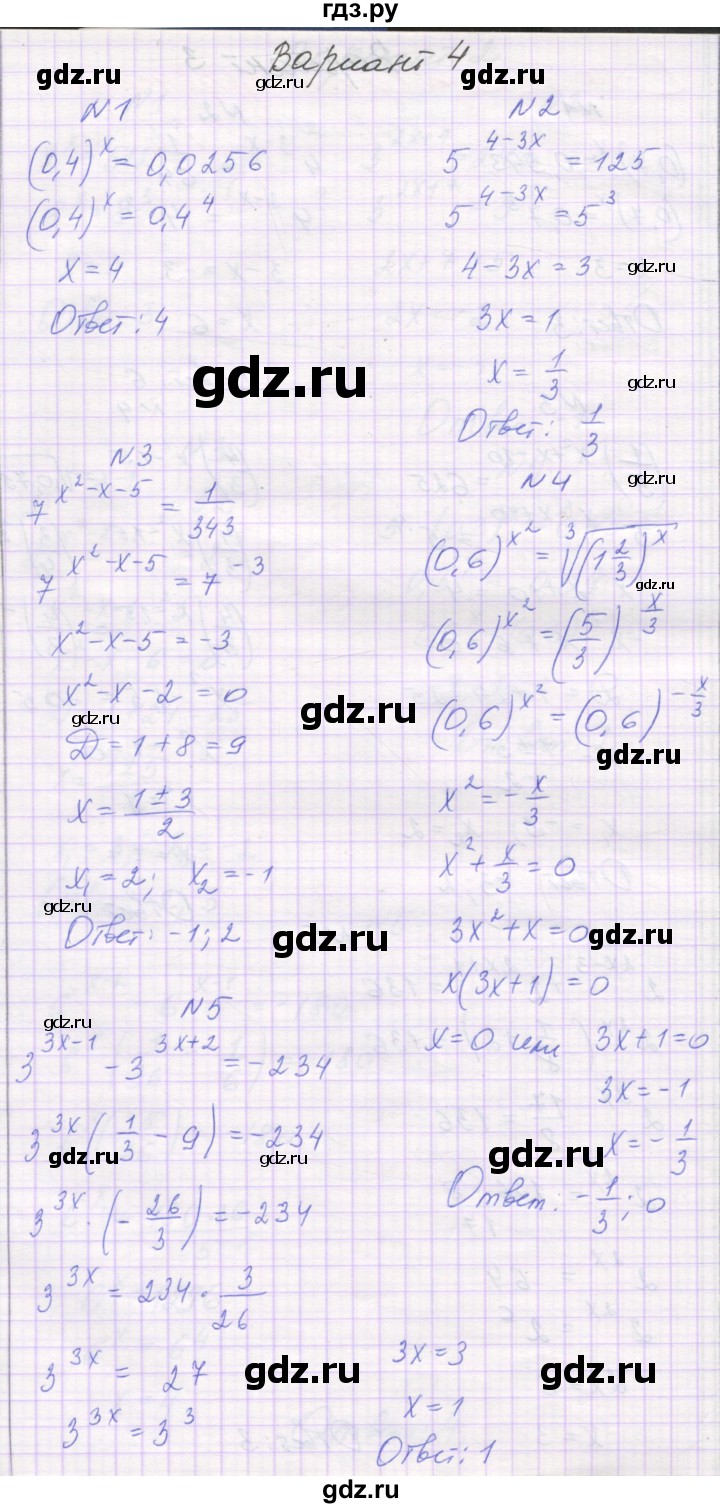 гдз.ру
Вариант 4
gdz.ru
gdz.ru
gdz.ru
№1
(0,4)^x = 0,0256
(0,4)^x = 0,4^4
x = 4
Ответ: 4
№2
5^{4-3x} = 125
5^{4-3x} = 5^3
4-3x = 3
gdz.ru
3x = 1
x = 1/3
gdz.ru
Ответ: 1/3
gdz.ru
№3
7^{x^2-x-5} = 1/343
7^{x^2-x-5} = 7^{-3}
x^2-x-5 = -3
x^2-x-2 = 0
gdz.ru
Д = 1+8 = 9
x = (1±3)/2
x_1 = 2; x_2 = -1
gdz.ru
Ответ: -1; 2
gdz.ru
gdz.ru
№4
gdz.ru
(0,6)^{x^2} = ∛((1 2/3)^x)
gdz.ru
(0,6)^{x^2} = (5/3)^{x/3}
(0,6)^{x^2} = (0,6)^{-x/3}
gdz.ru
x^2 = -x/3
x^2 + x/3 = 0
3x^2 + x = 0
gdz.ru
x(3x+1) = 0
x = 0 или 3x+1 = 0
3x = -1
x = -1/3
gdz.ru
Ответ: -1/3; 0
№5
gdz.ru
3^{3x-1} - 3^{3x+2} = -234
3^{3x}(1/3 - 9) = -234
gdz.ru
gdz.ru
3^{3x}·(-26/3) = -234
3^{3x} = 234·3/26
3^{3x} = 27
gdz.ru
gdz.ru
3^{3x} = 3^3
3x = 3
x = 1
Ответ: 1
gdz.ru